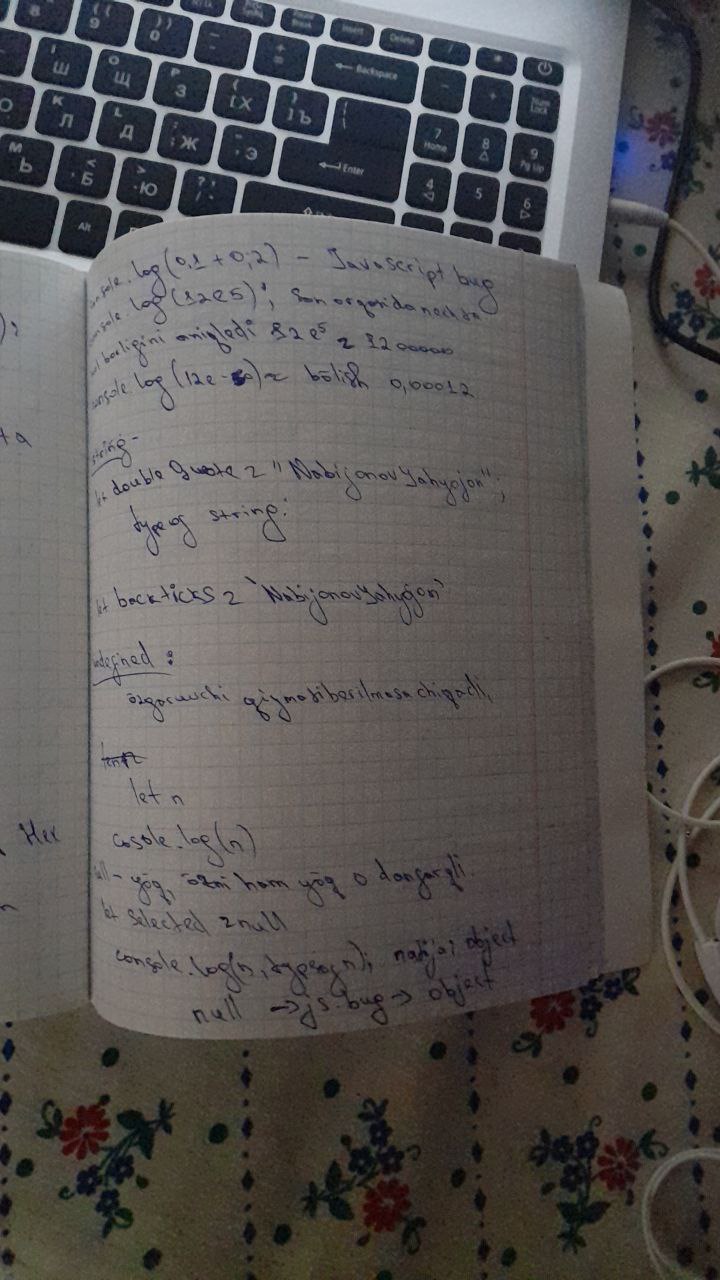 8 9 0 - = Backspace Insert Delete / *
Ш Щ З Х Ъ - +
Л Д Ж Э Enter 7 Home 8 9 Pg Up
Ь Б Ю 4 5 6
Alt
console.log(0,1 + 0,2) - Javascript bug
console log(12e5);
12e5 = 1200000
console.log(12e- bölish 0,00012
string-
let double Quote = "NabijonovYahyojon";
typeof string:
let backticks = `NabijonovYahyojon`
undefined :
özgaruvchi qiymatiberilmasa chiqadi,
let n
cosole.log(n)
null - yöq, özni ham yöq 0 danfarqli.
let selected = null
console.log(n, typeof n); natija; object
null → js.bug → object
ta
Hex